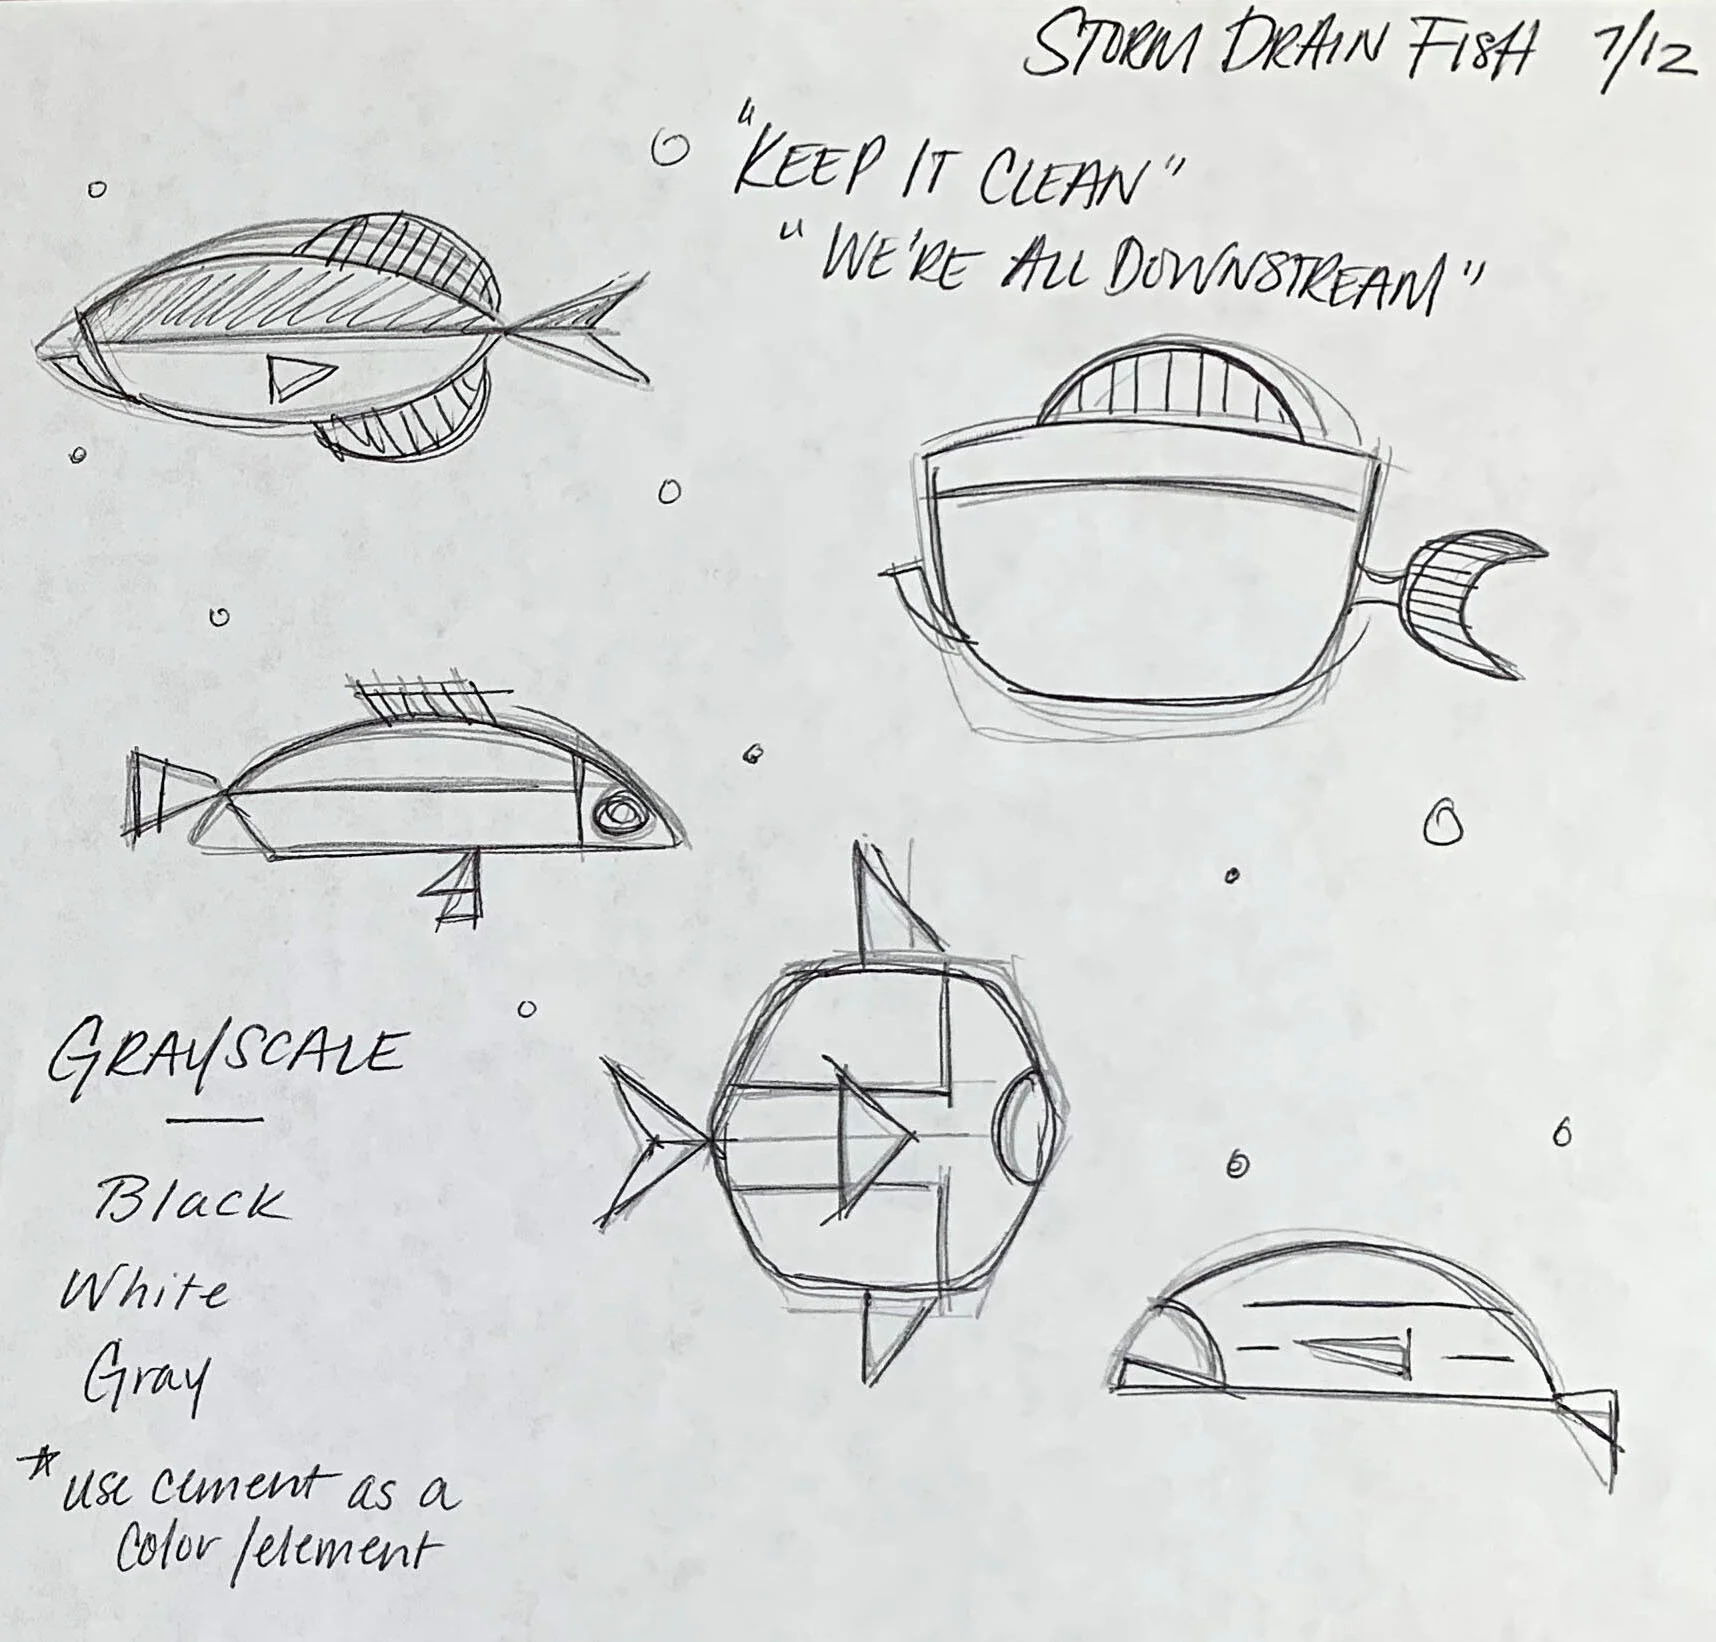 STORM DRAIN FISH 7/12
"KEEP IT CLEAN"
"WE'RE ALL DOWNSTREAM"
GRAYSCALE
Black
White
Gray
* use cement as a
color/element